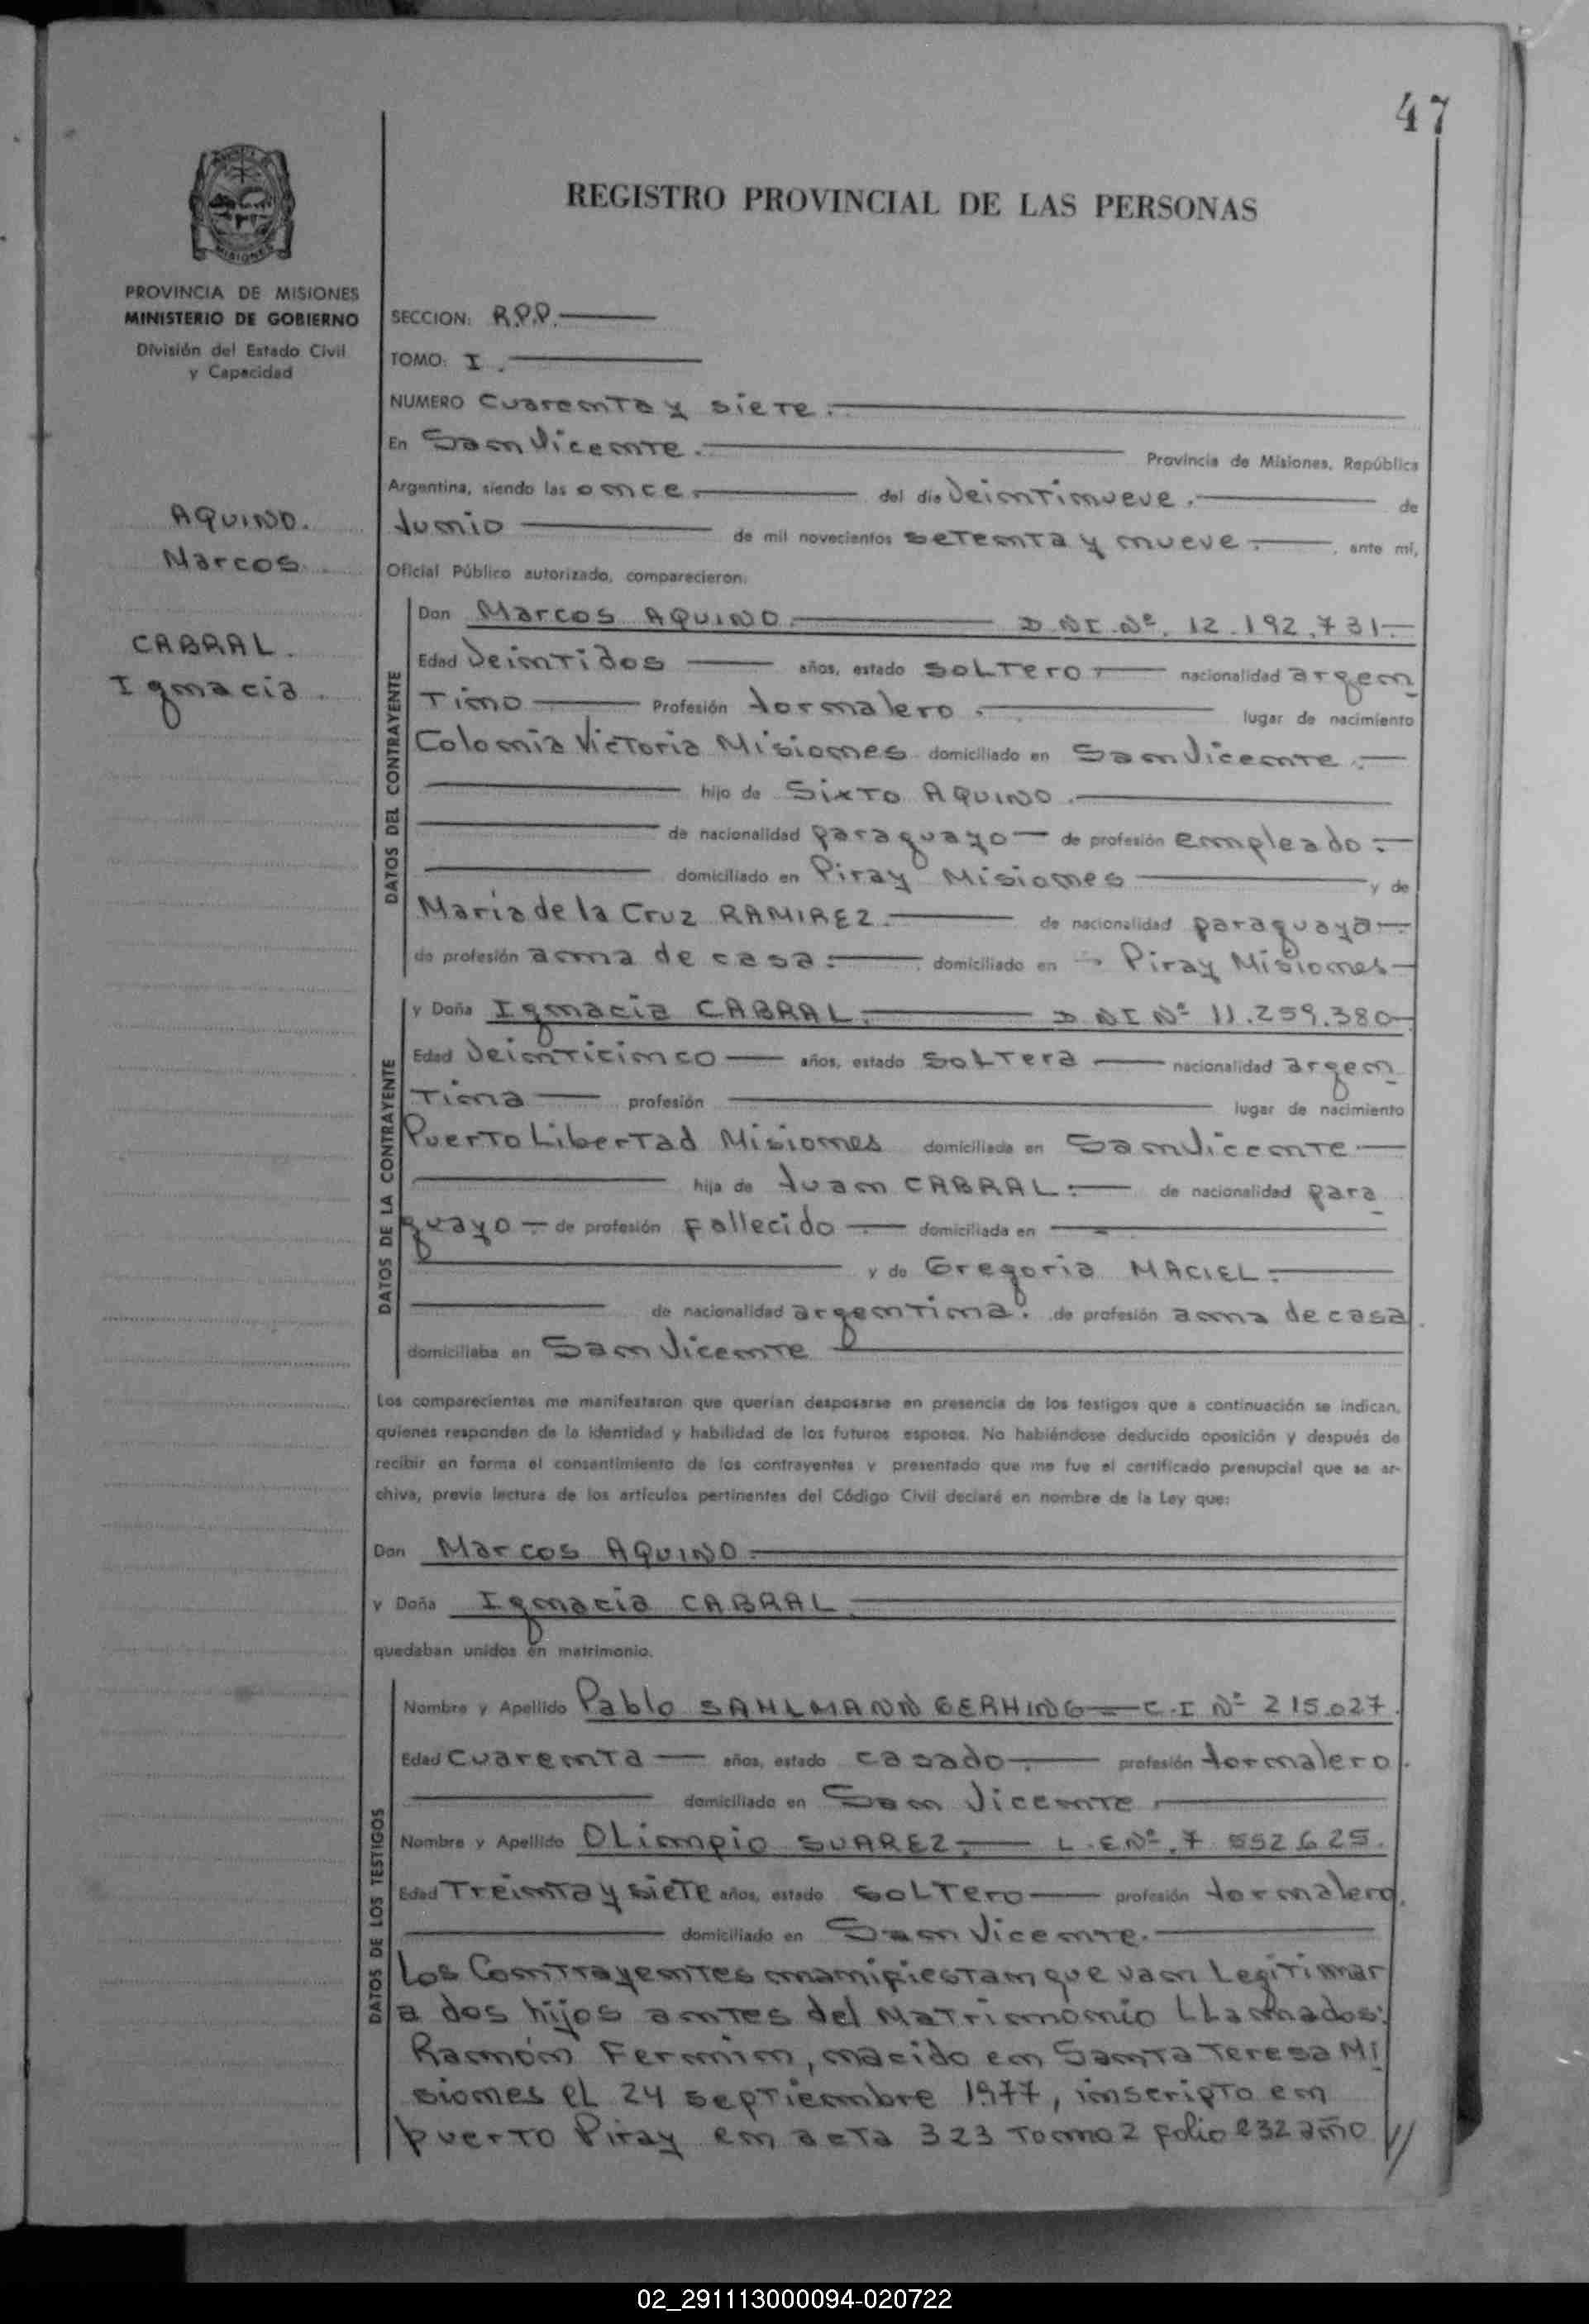 47
REGISTRO PROVINCIAL DE LAS PERSONAS
MISIONES
PROVINCIA DE MISIONES
MINISTERIO DE GOBIERNO
División del Estado Civil
y Capacidad
SECCION: R.P.P.
TOMO: I.
NUMERO cuarenta y siete.
En San Vicente. Provincia de Misiones, República
Argentina, siendo las once del dia Veintinueve. de
Junio de mil novecientos setenta y nueve. , ante mí,
Oficial Público autorizado, comparecieron:
AQUINO.
Marcos.
CABRAL.
Ignacia.
DATOS DEL CONTRAYENTE
Don Marcos AQUINO. D.N.I.Nº. 12.192.731.
Edad Veintidos años, estado soltero nacionalidad argen
tino Profesión Jornalero. lugar de nacimiento
Colonia Victoria Misiones domiciliado en San Vicente.
hijo de Sixto AQUINO.
de nacionalidad paraguayo de profesión empleado.
domiciliado en Piray Misiones y de
Maria de la Cruz RAMIREZ. de nacionalidad paraguaya
de profesión ama de casa. domiciliado en Piray Misiones
DATOS DE LA CONTRAYENTE
y Doña Ignacia CABRAL. D NI Nº 11.259.380
Edad Veinticinco años, estado soltera nacionalidad argen
tina profesión lugar de nacimiento
Puerto Libertad Misiones domiciliada en San Vicente
hija de Juan CABRAL. de nacionalidad para
guayo de profesión fallecido domiciliada en
y de Gregoria MACIEL.
de nacionalidad argentina. de profesión ama de casa
domiciliaba en San Vicente
Los comparecientes me manifestaron que querían desposarse en presencia de los testigos que a continuación se indican,
quienes responden de la identidad y habilidad de los futuros esposos. No habiéndose deducido oposición y después de
recibir en forma el consentimiento de los contrayentes y presentado que me fue el certificado prenupcial que se ar-
chiva, previa lectura de los artículos pertinentes del Código Civil declaré en nombre de la Ley que:
Don Marcos AQUINO.
y Doña Ignacia CABRAL.
quedaban unidos en matrimonio.
DATOS DE LOS TESTIGOS
Nombre y Apellido Pablo SAHLMANN GERHING C.I Nº 215.027.
Edad cuarenta años, estado casado profesión Jornalero.
domiciliado en San Vicente
Nombre y Apellido OLimpio SUAREZ. L.E Nº. 7 552 625.
Edad Treinta y siete años, estado soltero profesión Jornalero.
domiciliado en San Vicente.
Los Contrayentes manifiestan que van Legitimar
a dos hijos antes del Matrimonio LLamados:
Ramón Fermin, nacido en Santa Teresa Mi
siones el 24 septiembre 1977, inscripto en
puerto Piray en acta 323 Tomo 2 folio año //
02_291113000094-020722